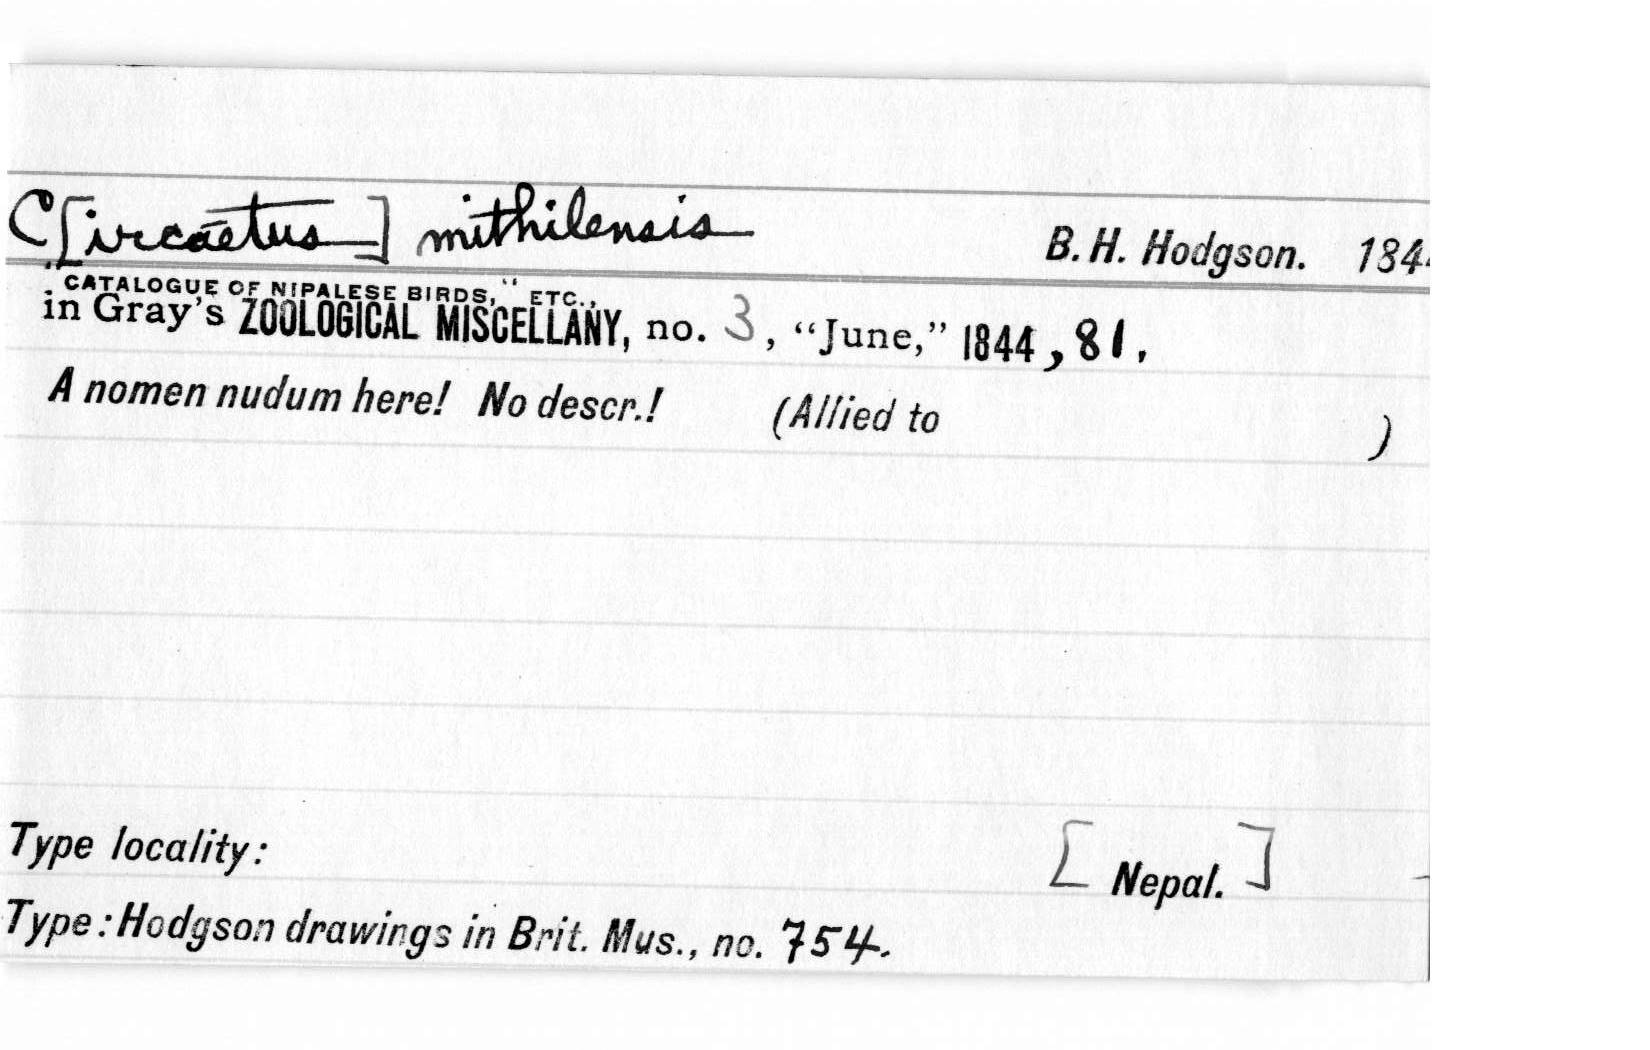 C[ircaetus] mithilensis B. H. Hodgson. 1844
"CATALOGUE OF NIPALESE BIRDS," ETC.,
in Gray's ZOOLOGICAL MISCELLANY, no. 3, "June," 1844, 81.
A nomen nudum here! No descr.! (Allied to )
Type locality: [Nepal.]
Type: Hodgson drawings in Brit. Mus., no. 754.